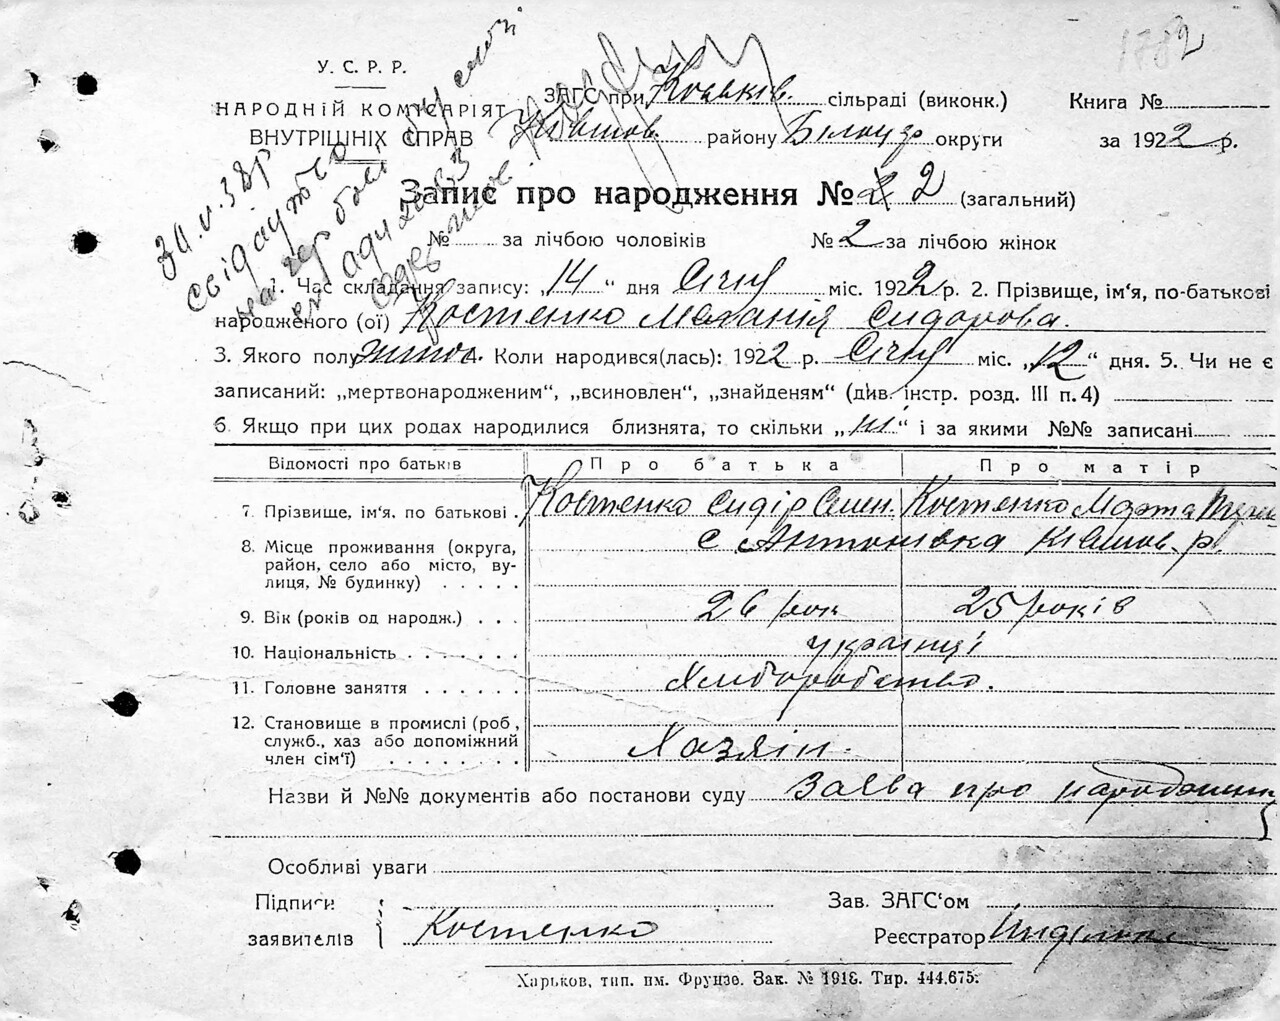 1782
У. С. Р. Р.
НАРОДНІЙ КОМІСАРІЯТ
ВНУТРІШНІХ СПРАВ
ЗАГС при сільраді (виконк.) Книга №
району округи за 1922 р.
Запис про народження № 2 (загальний)
№ за лічбою чоловіків № 2 за лічбою жінок
1. Час складання запису: „14“ дня Січня міс. 1922 р. 2. Прізвище, ім'я, по-батькові
народженого (ої) Костенко Меланія Сидорова.
3. Якого полу жіноч. 4. Коли народився(лась): 1922 р. Січня міс. „12“ дня. 5. Чи не є
записаний: „мертвонародженим“, „всиновлен“, „знайденям“ (див. інстр. розд. III п. 4)
6. Якщо при цих родах народилися близнята, то скільки „ні“ і за якими №№ записані
Відомості про батьків Про батька Про матір
7. Прізвище, ім'я, по батькові Костенко Сидір Семен. Костенко Марта
8. Місце проживання (округа, с Антонівка р.
район, село або місто, ву-
лиця, № будинку)
9. Вік (років од народж.) 26 рок 25 років
10. Національність українці
11. Головне заняття Хліборобство.
12. Становище в промислі (роб.,
служб., хаз або допоміжний Хазяїн.
член сім'ї)
Назви й №№ документів або постанови суду Заява про народження
Особливі уваги
Підписи Зав. ЗАГС'ом
заявителів Костенко Реєстратор
Харьков, тип. им. Фрунзе. Зак. № 1918. Тир. 444.675.